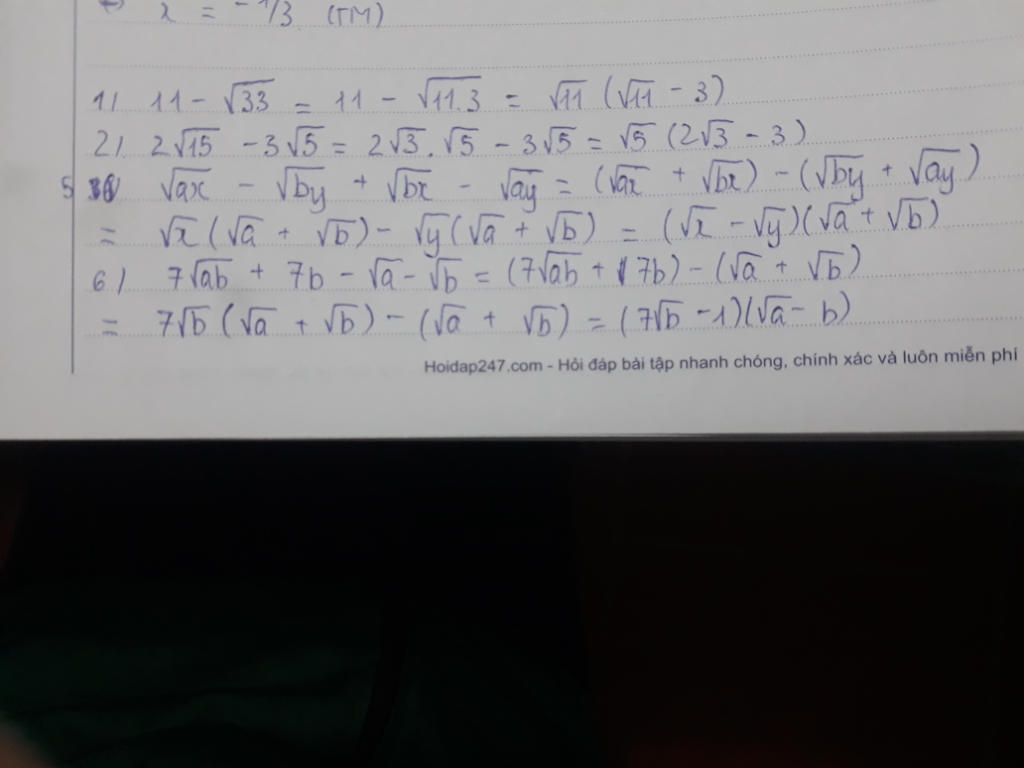 x = -1/3 (TM)
1) 11 - √33 = 11 - √11.3 = √11 (√11 - 3)
2) 2√15 - 3√5 = 2√3.√5 - 3√5 = √5 (2√3 - 3)
5) √ax - √by + √bx - √ay = (√ax + √bx) - (√by + √ay)
= √x (√a + √b) - √y (√a + √b) = (√x - √y)(√a + √b)
6) 7√ab + 7b - √a - √b = (7√ab + 7b) - (√a + √b)
= 7√b (√a + √b) - (√a + √b) = (7√b - 1)(√a - b)
Hoidap247.com - Hỏi đáp bài tập nhanh chóng, chính xác và luôn miễn phí